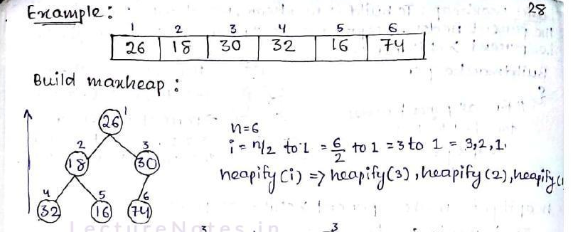 Example :
28
1 2 3 4 5 6
26 18 30 32 16 74
Build maxheap :
26 1
2 3
18 30
4 5 6
32 16 74
n=6
i = n/2 to 1 = 6/2 to 1 = 3 to 1 = 3,2,1.
heapify (i) => heapify(3), heapify(2), heapify(1
LectureNotes.in
3 3